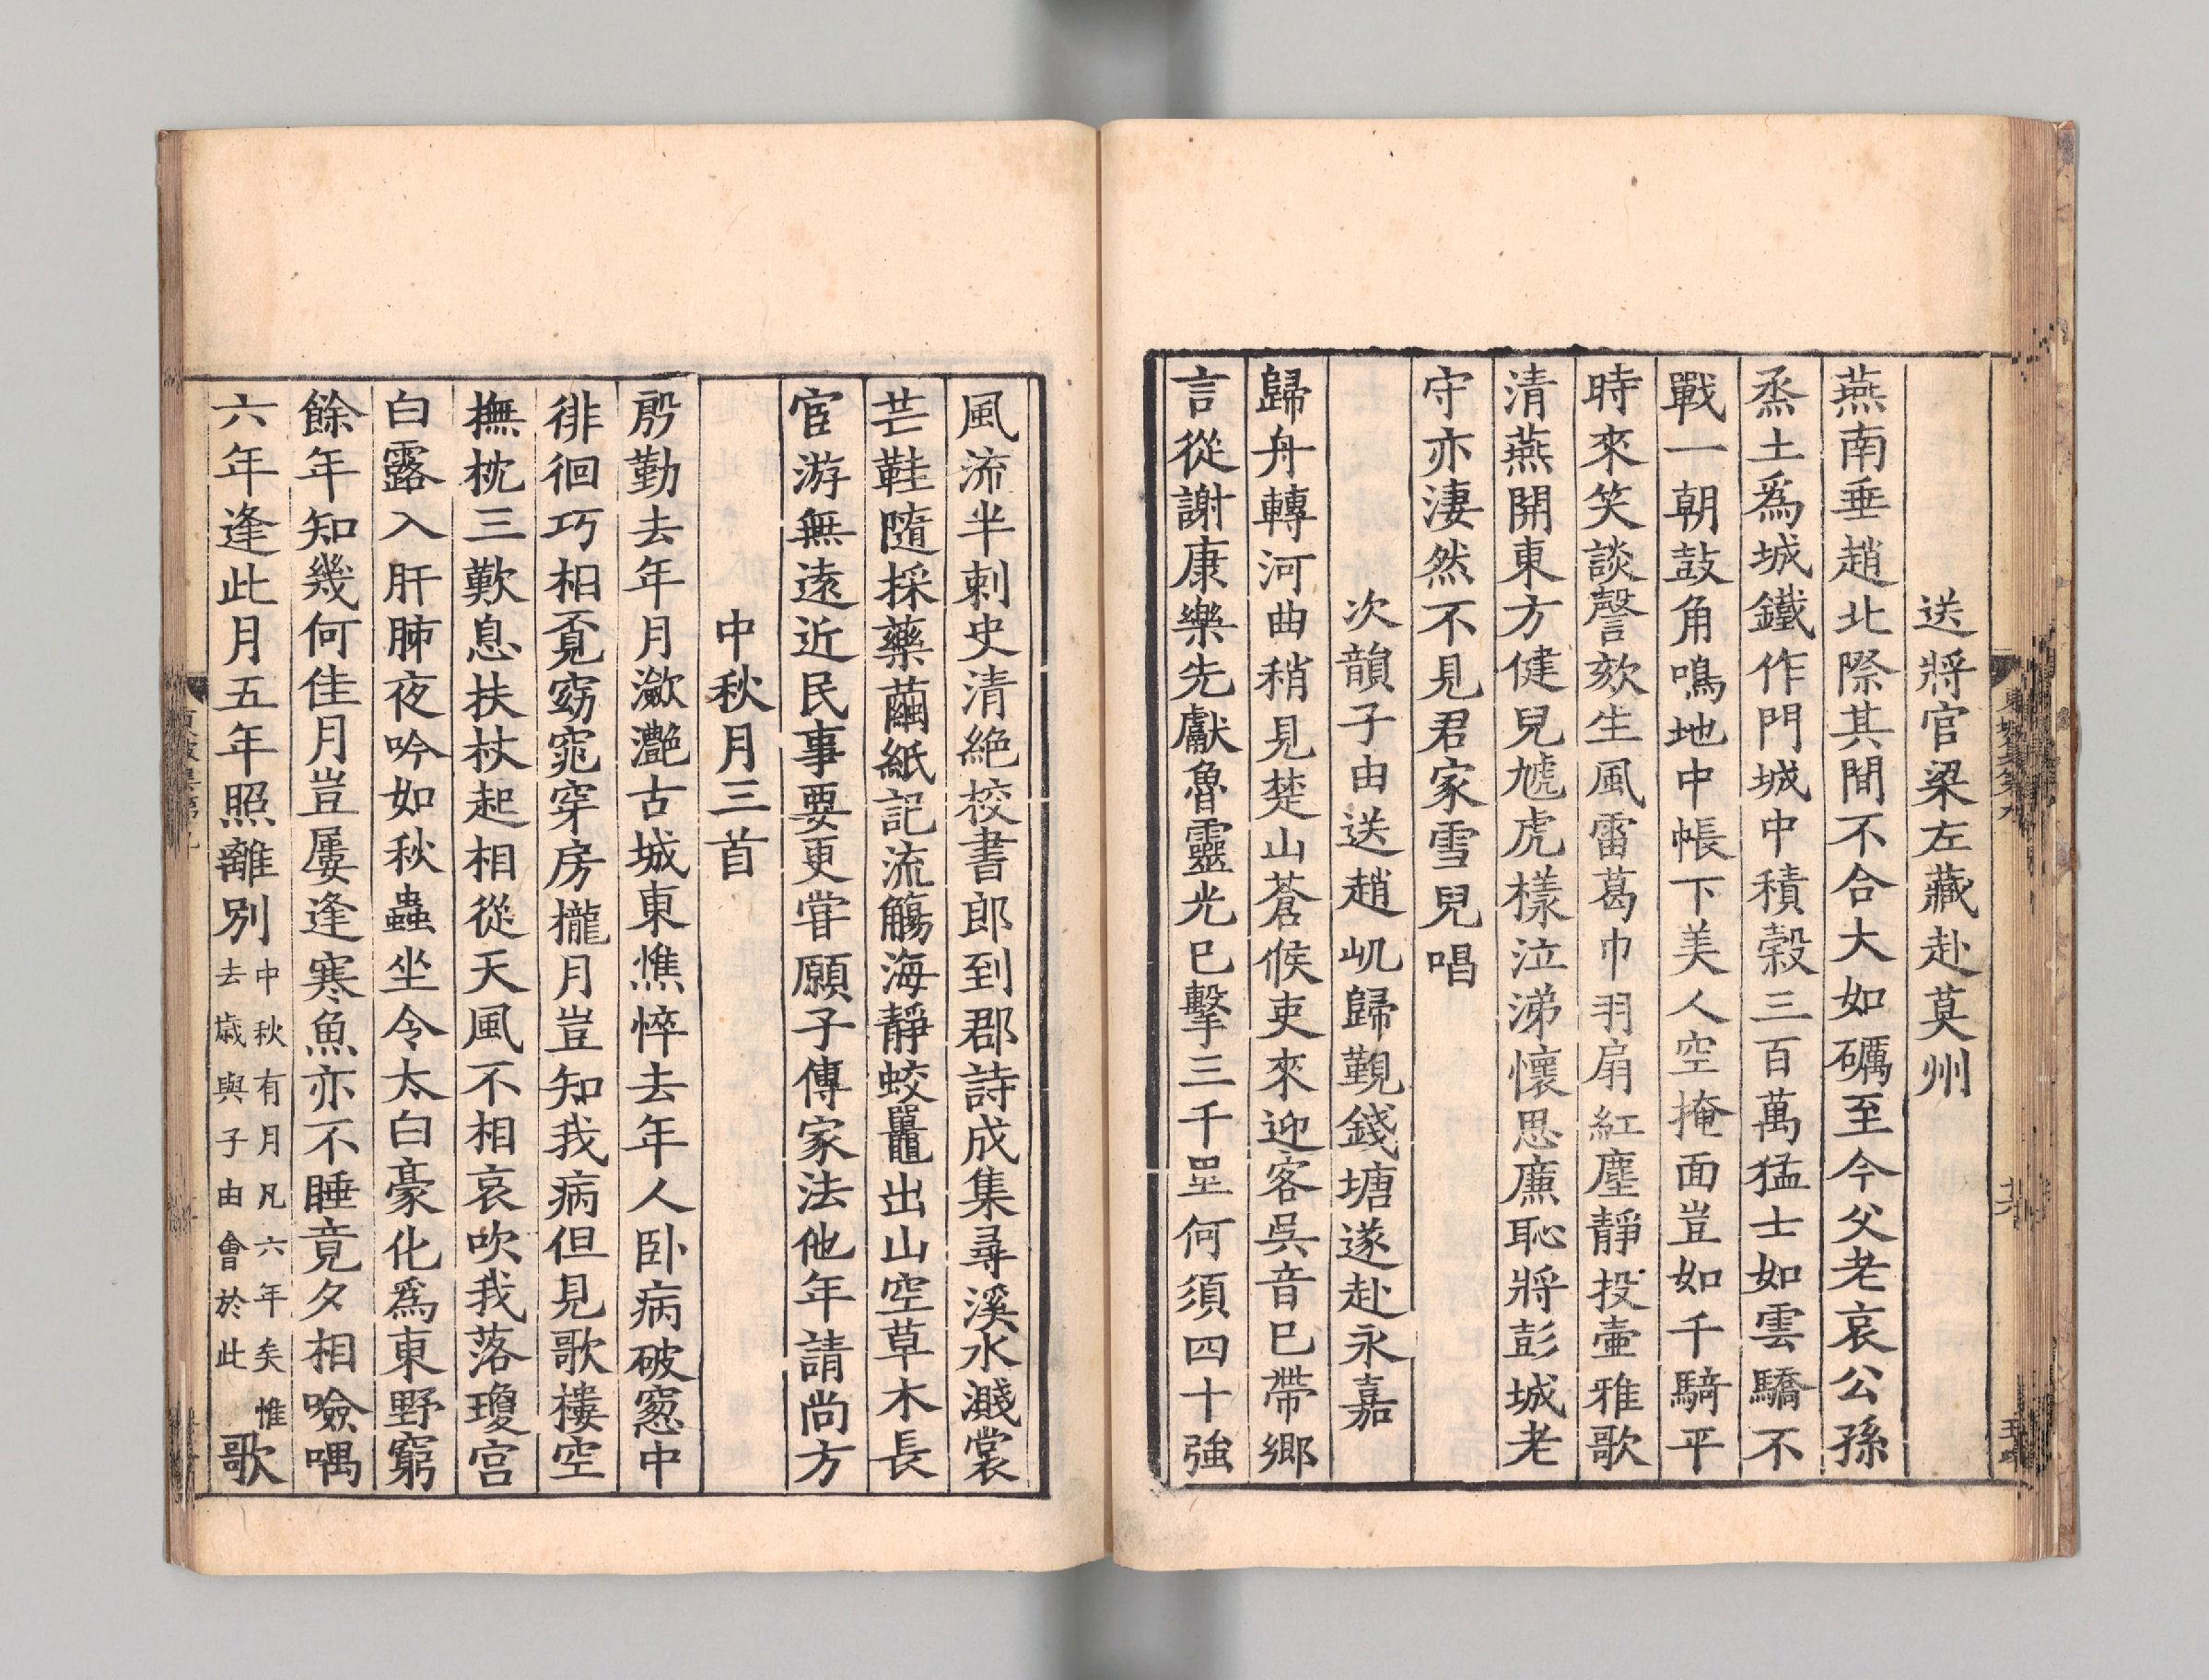 送將官梁左藏赴莫州
燕南垂趙北際其間不合大如礪至今父老哀公孫
烝土爲城鐵作門城中積穀三百萬猛士如雲驕不
戰一朝鼓角鳴地中帳下美人空掩面豈如千騎平
時來笑談謦欬生風雷葛巾羽扇紅塵靜投壷雅歌
清燕開東方健兒虓虎樣泣涕懷思廉恥將彭城老
守亦淒然不見君家雪兒唱
次韻子由送趙㞦歸覲錢塘遂赴永嘉
歸舟轉河曲稍見楚山蒼候吏來迎客吳音已帶鄉
言從謝康樂先獻魯靈光已擊三千里何須四十強
風流半刺史清絶校書郎到郡詩成集尋溪水濺裳
芒鞋隨採藥繭紙記流觴海靜蛟鼉出山空草木長
宦游無遠近民事要更甞願子傳家法他年請尚方
中秋月三首
殷勤去年月瀲灔古城東憔悴去年人卧病破窓中
徘徊巧相覔窈窕穿房櫳月豈知我病但見歌樓空
撫枕三歎息扶杖起相從天風不相哀吹我落瓊宮
白露入肝肺夜吟如秋蟲坐令太白豪化爲東野窮
餘年知幾何佳月豈屢逢寒魚亦不睡竟夕相噞喁
六年逢此月五年照離别中秋有月凡六年矣惟去歳與子由會於此歌